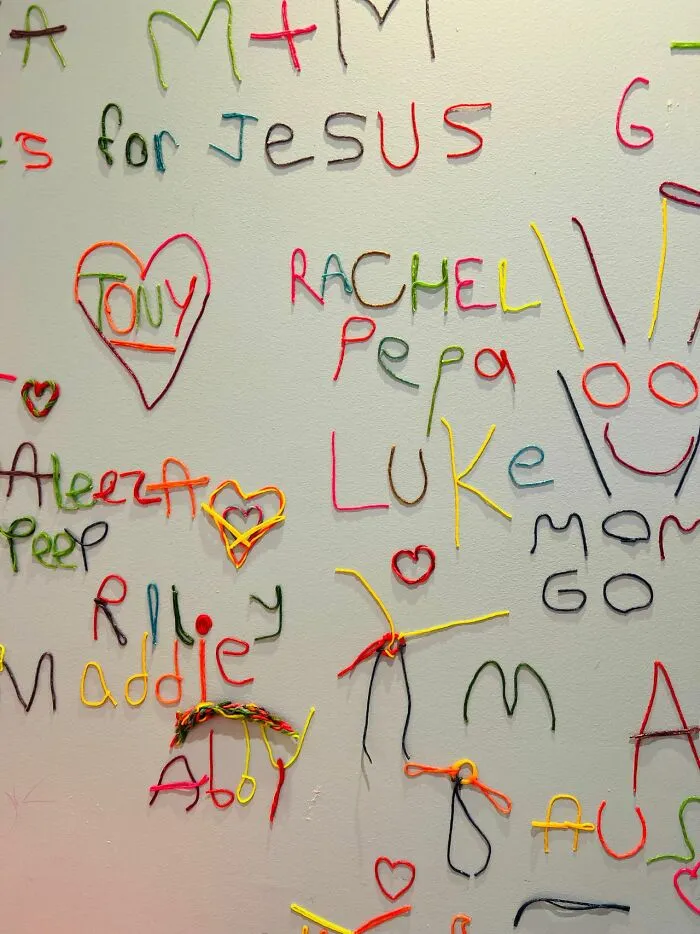 A M+M
s for JeSUS
G
TONY
RACHEL
Pepa
LUKe
AleezA
PeeP
MOM
GO
RIley
Maddie
Abby
M A
AUS